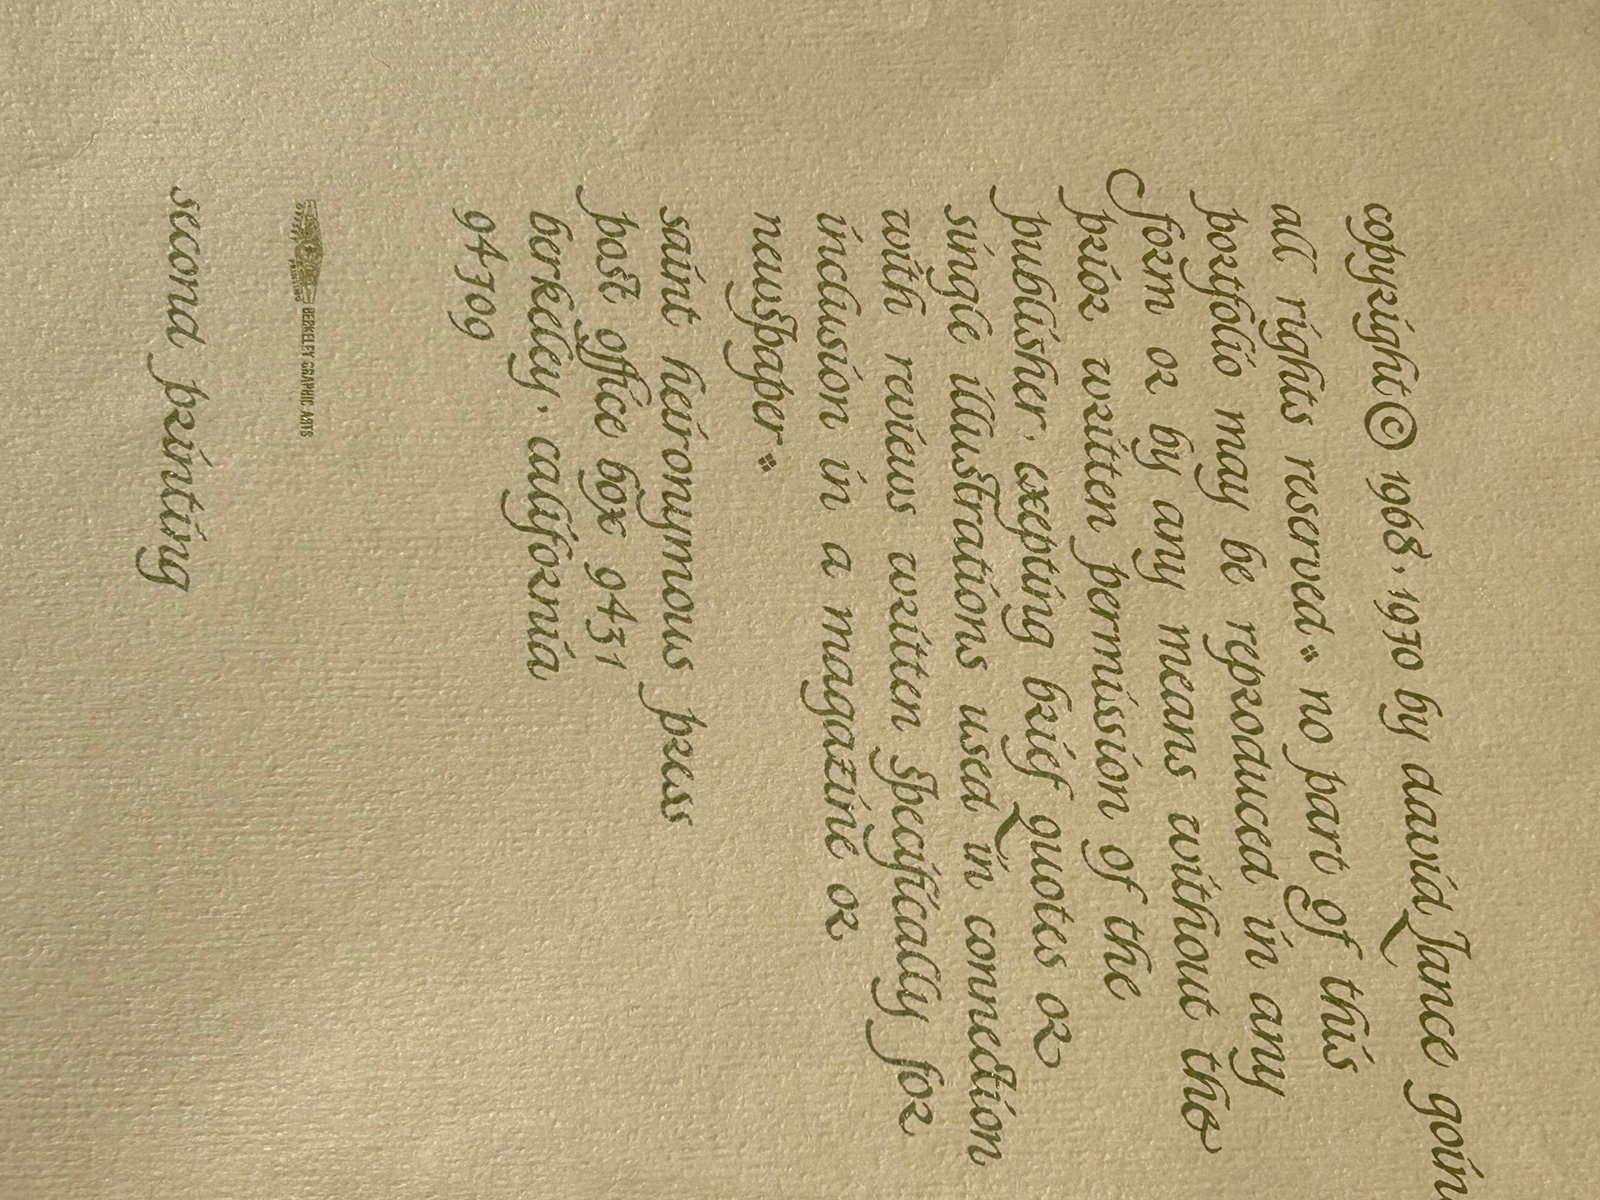 copyright © 1968, 1970 by david lance goin
all rights reserved no part of this
portfolio may be reproduced in any
form or by any means without the
prior written permission of the
publisher, excepting brief quotes or
single illustrations used in connection
with reviews written specifically for
inclusion in a magazine or
newspaper
saint heironymous press
post office box 9431
berkeley, california
94709
BERKELEY GRAPHIC ARTS
second printing